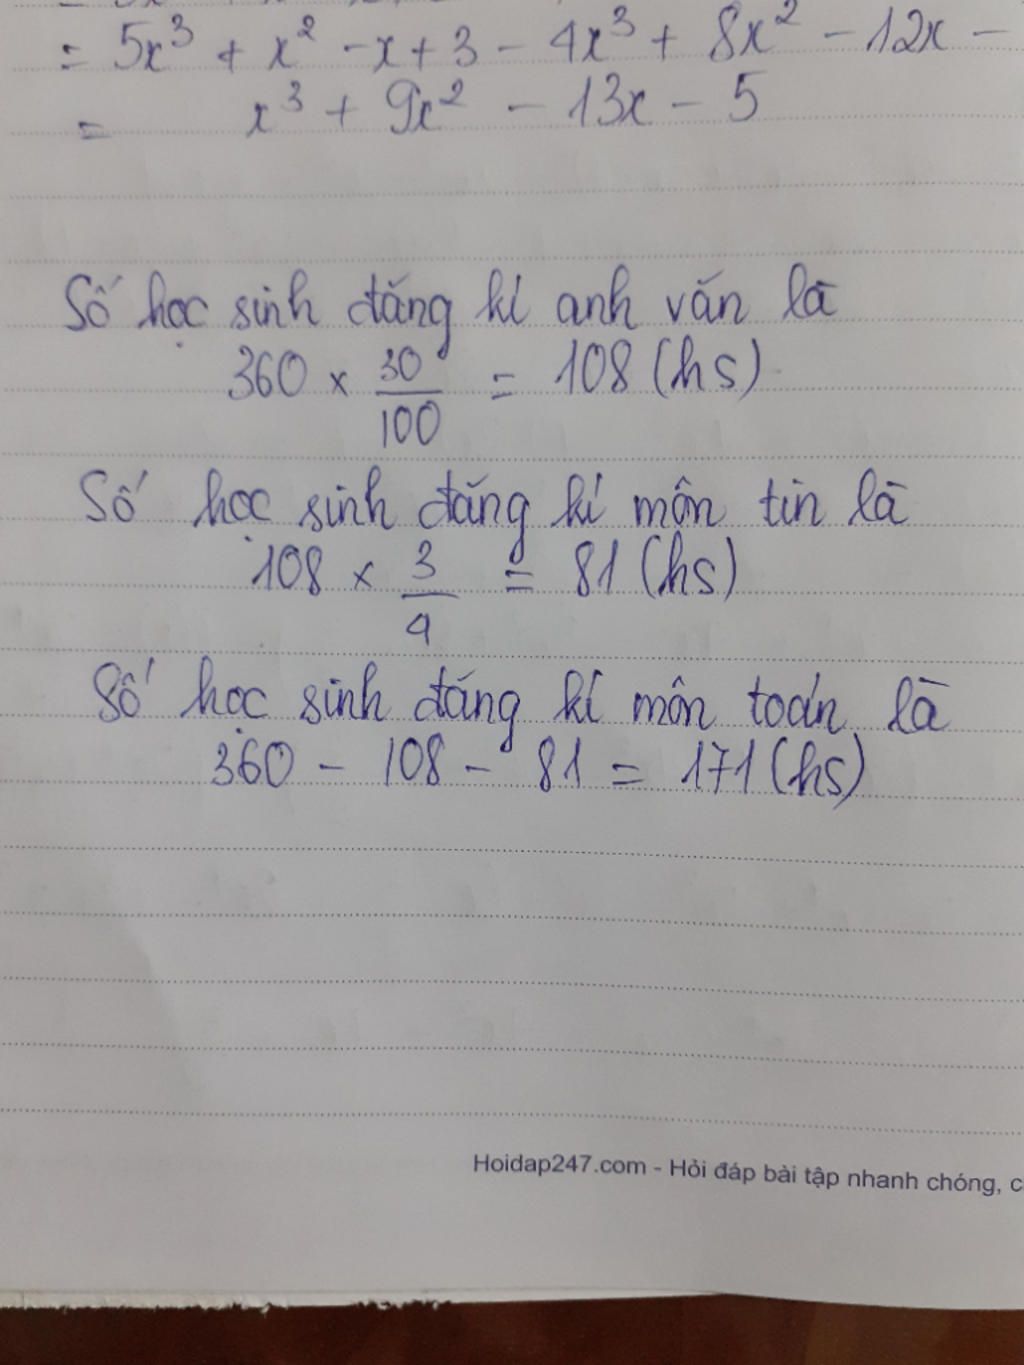 = 5x³ + x² - x + 3 - 4x³ + 8x² - 12x -
= x³ + 9x² - 13x - 5
Số học sinh đăng kí anh văn là
360 × 30/100 = 108 (hs)
Số học sinh đăng kí môn tin là
108 × 3/4 = 81 (hs)
Số học sinh đăng kí môn toán là
360 - 108 - 81 = 171 (hs)
Hoidap247.com - Hỏi đáp bài tập nhanh chóng, c